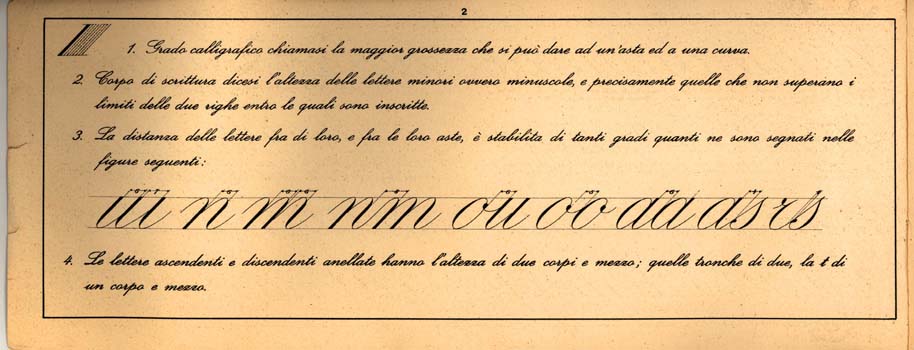 2
1. Grado calligrafico chiamasi la maggior grossezza che si può dare ad un'asta ed a una curva.
2. Corpo di scrittura dicesi l'altezza delle lettere minori ovvero minuscole, e precisamente quelle che non superano i
limiti delle due righe entro le quali sono inscritte.
3. La distanza delle lettere fra di loro, e fra le loro aste, è stabilita di tanti gradi quanti ne sono segnati nelle
figure seguenti:
4. Le lettere ascendenti e discendenti anellate hanno l'altezza di due corpi e mezzo; quelle tronche di due, la t di
un corpo e mezzo.